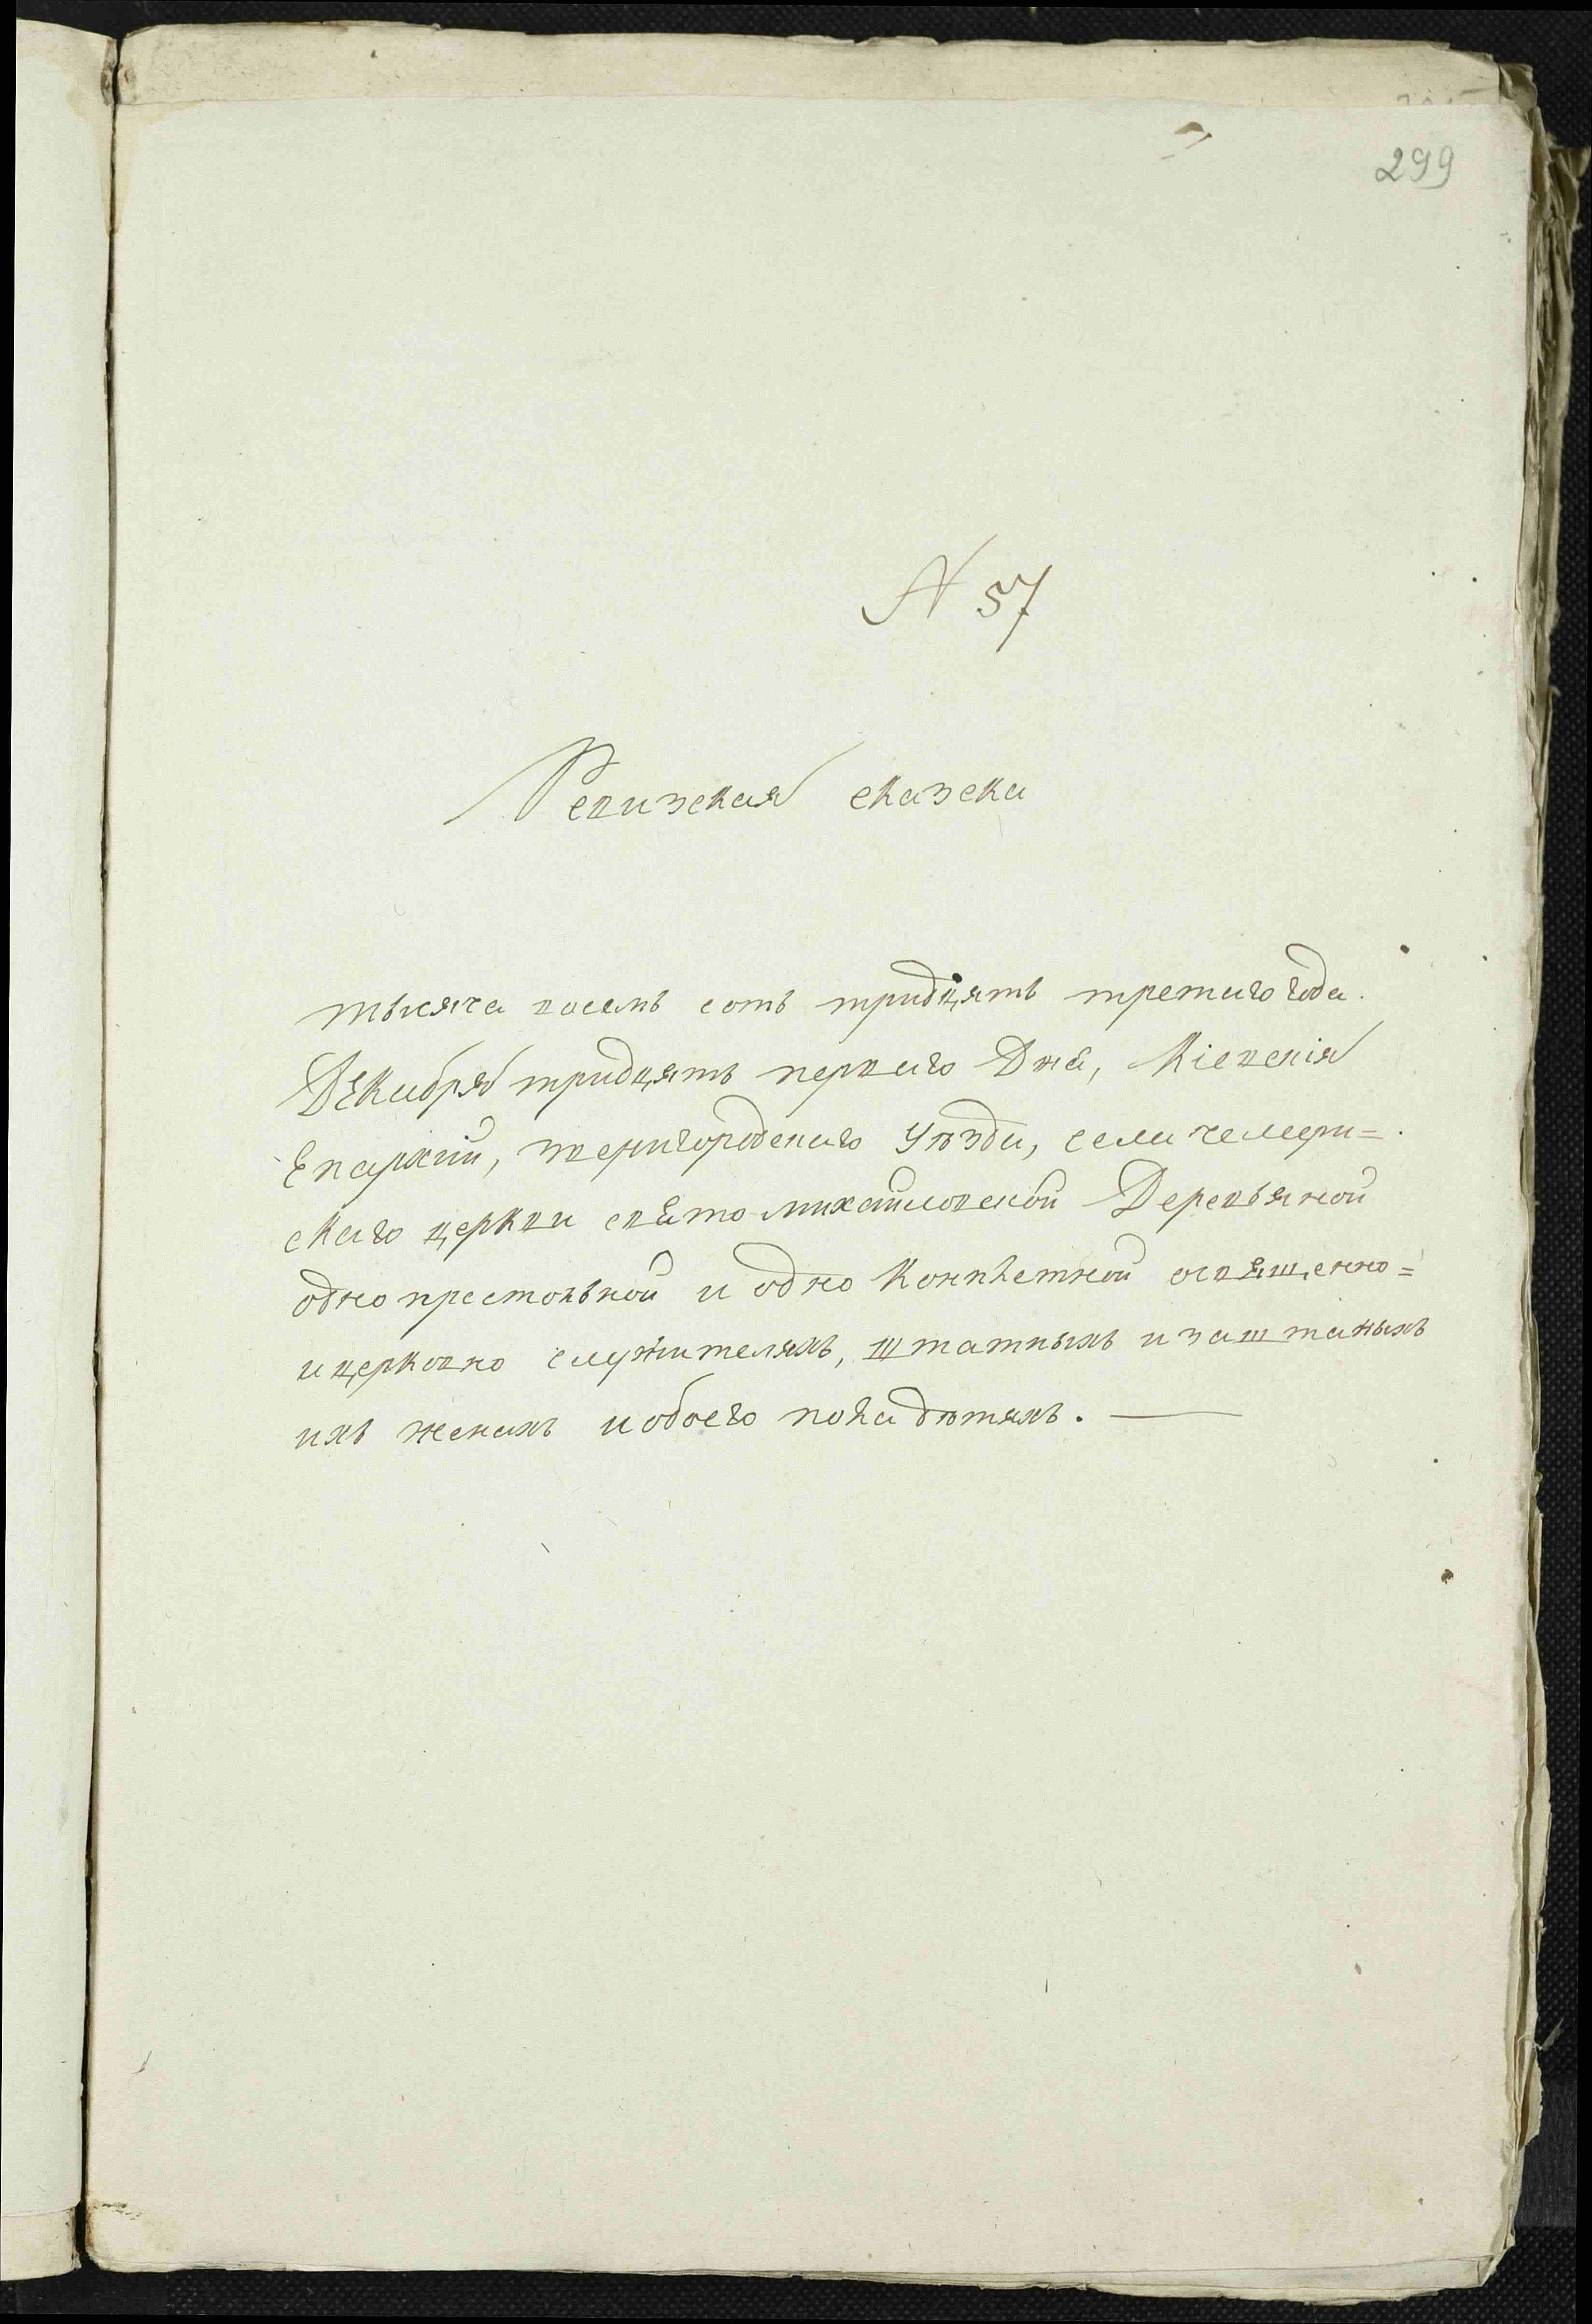 299
N 57
Ревизская сказска
тысяча восемь сотъ тридцять третаго года.
Декабря тридцять перваго Дня, Кіевскія
Епархіи, звенигородскаго Уѣзда, села чемери=
скаго церкви свято михайловской Деревьяной
одно престольной и одно Комплетной освященно=
и церковно служителяхъ, штатныхъ и заштаныхъ
ихъ женахъ и обоего пола дѣтяхъ. —